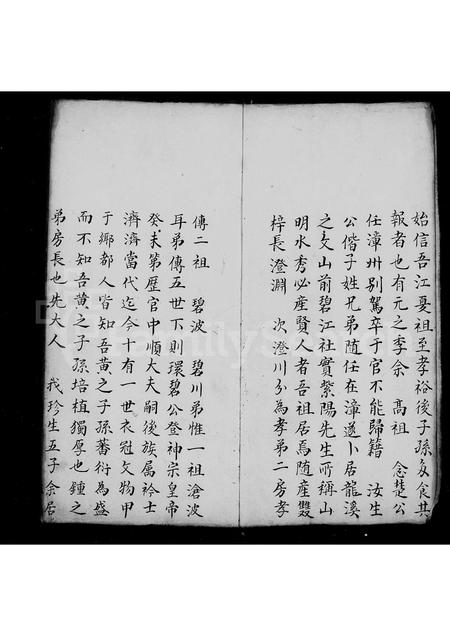 始信吾江夏祖至孝裕後子孫食其
報者也有元之季余 高祖 念楚公
任漳州別駕卒于官不能歸籍 汝生
公偕子姓兄弟随任在漳遂卜居龍溪
之文山前碧江社實紫陽先生所稱山
明水秀必產賢人者吾祖居焉随產雙
梓長澄淵 次澄川分為孝弟二房孝
傳二祖 碧波 碧川弟惟一祖滄波
耳弟傳五世下則環碧公登神宗皇帝
癸未第歷官中順大夫嗣後族属衿士
濟濟當代迄今十有一世衣冠文物甲
于鄉都人皆知吾黄之子孫蕃衍為盛
而不知吾黄之子孫培植獨厚也鍾之
弟房長也先大人 戎珍生五子余居
FamilySearch